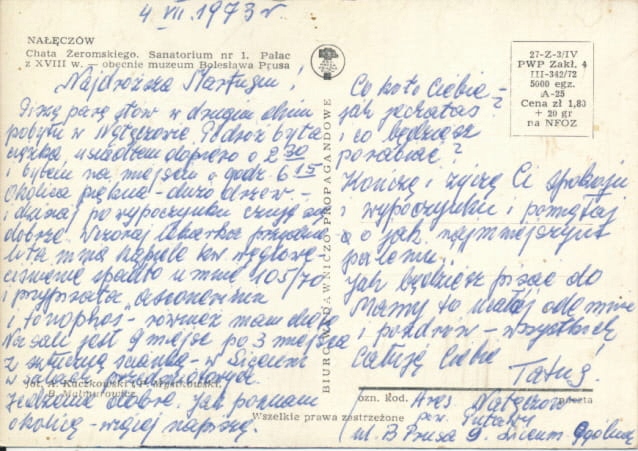 4 VII. 1973 r
NAŁĘCZÓW
Chata Żeromskiego. Sanatorium nr 1. Pałac
z XVIII w. — obecnie muzeum Bolesława Prusa
27-Z-3/IV
PWP Zakł. 4
III-342/72
5000 egz.
A-25
Cena zł 1,80
+ 20 gr
na NFOZ
Najdroższa
Piszę parę słów w drugim dniu
pobytu w Nałęczowie. Podróż była
ciężka, usiadłem dopiero o 2 30
i byłem na miejscu o godz. 6 15
Okolica piękna - dużo drzew -
i dzisiaj po wypoczynku czuję się
dobrze. Wczoraj lekarka
mnie kąpiele kw. węglowe -
ciśnienie spadło u mnie 105/70
i przypisała
i - również mam dietę
Na sali jest 9 miejsc po 3 miejsca
z sztuczną ścianką - w Liceum
w
Jedzenie dobre. Jak poznam
okolicę - więcej napiszę.
fot. A. Kaczkowski i P. Mystkowski.
B. Malmurowicz.
BIURO WYDAWNICZO-PROPAGANDOWE
Co koło Ciebie -
jak jechałaś?
i co będziesz
porabiać?
Kończę i życzę Ci spokoju
i wypoczynku i pamiętaj
o jak najmniejszym
paleniu.
Jak będziesz pisać do
Mamy to ucałuj ode mnie
i pozdrów - wszystkich
Całuję Ciebie
Tatuś!
ozn. kod. poczta
Adres Nałęczów
pow. Puławy
ul. B Prusa 9. Liceum Ogóln.
Wszelkie prawa zastrzeżone